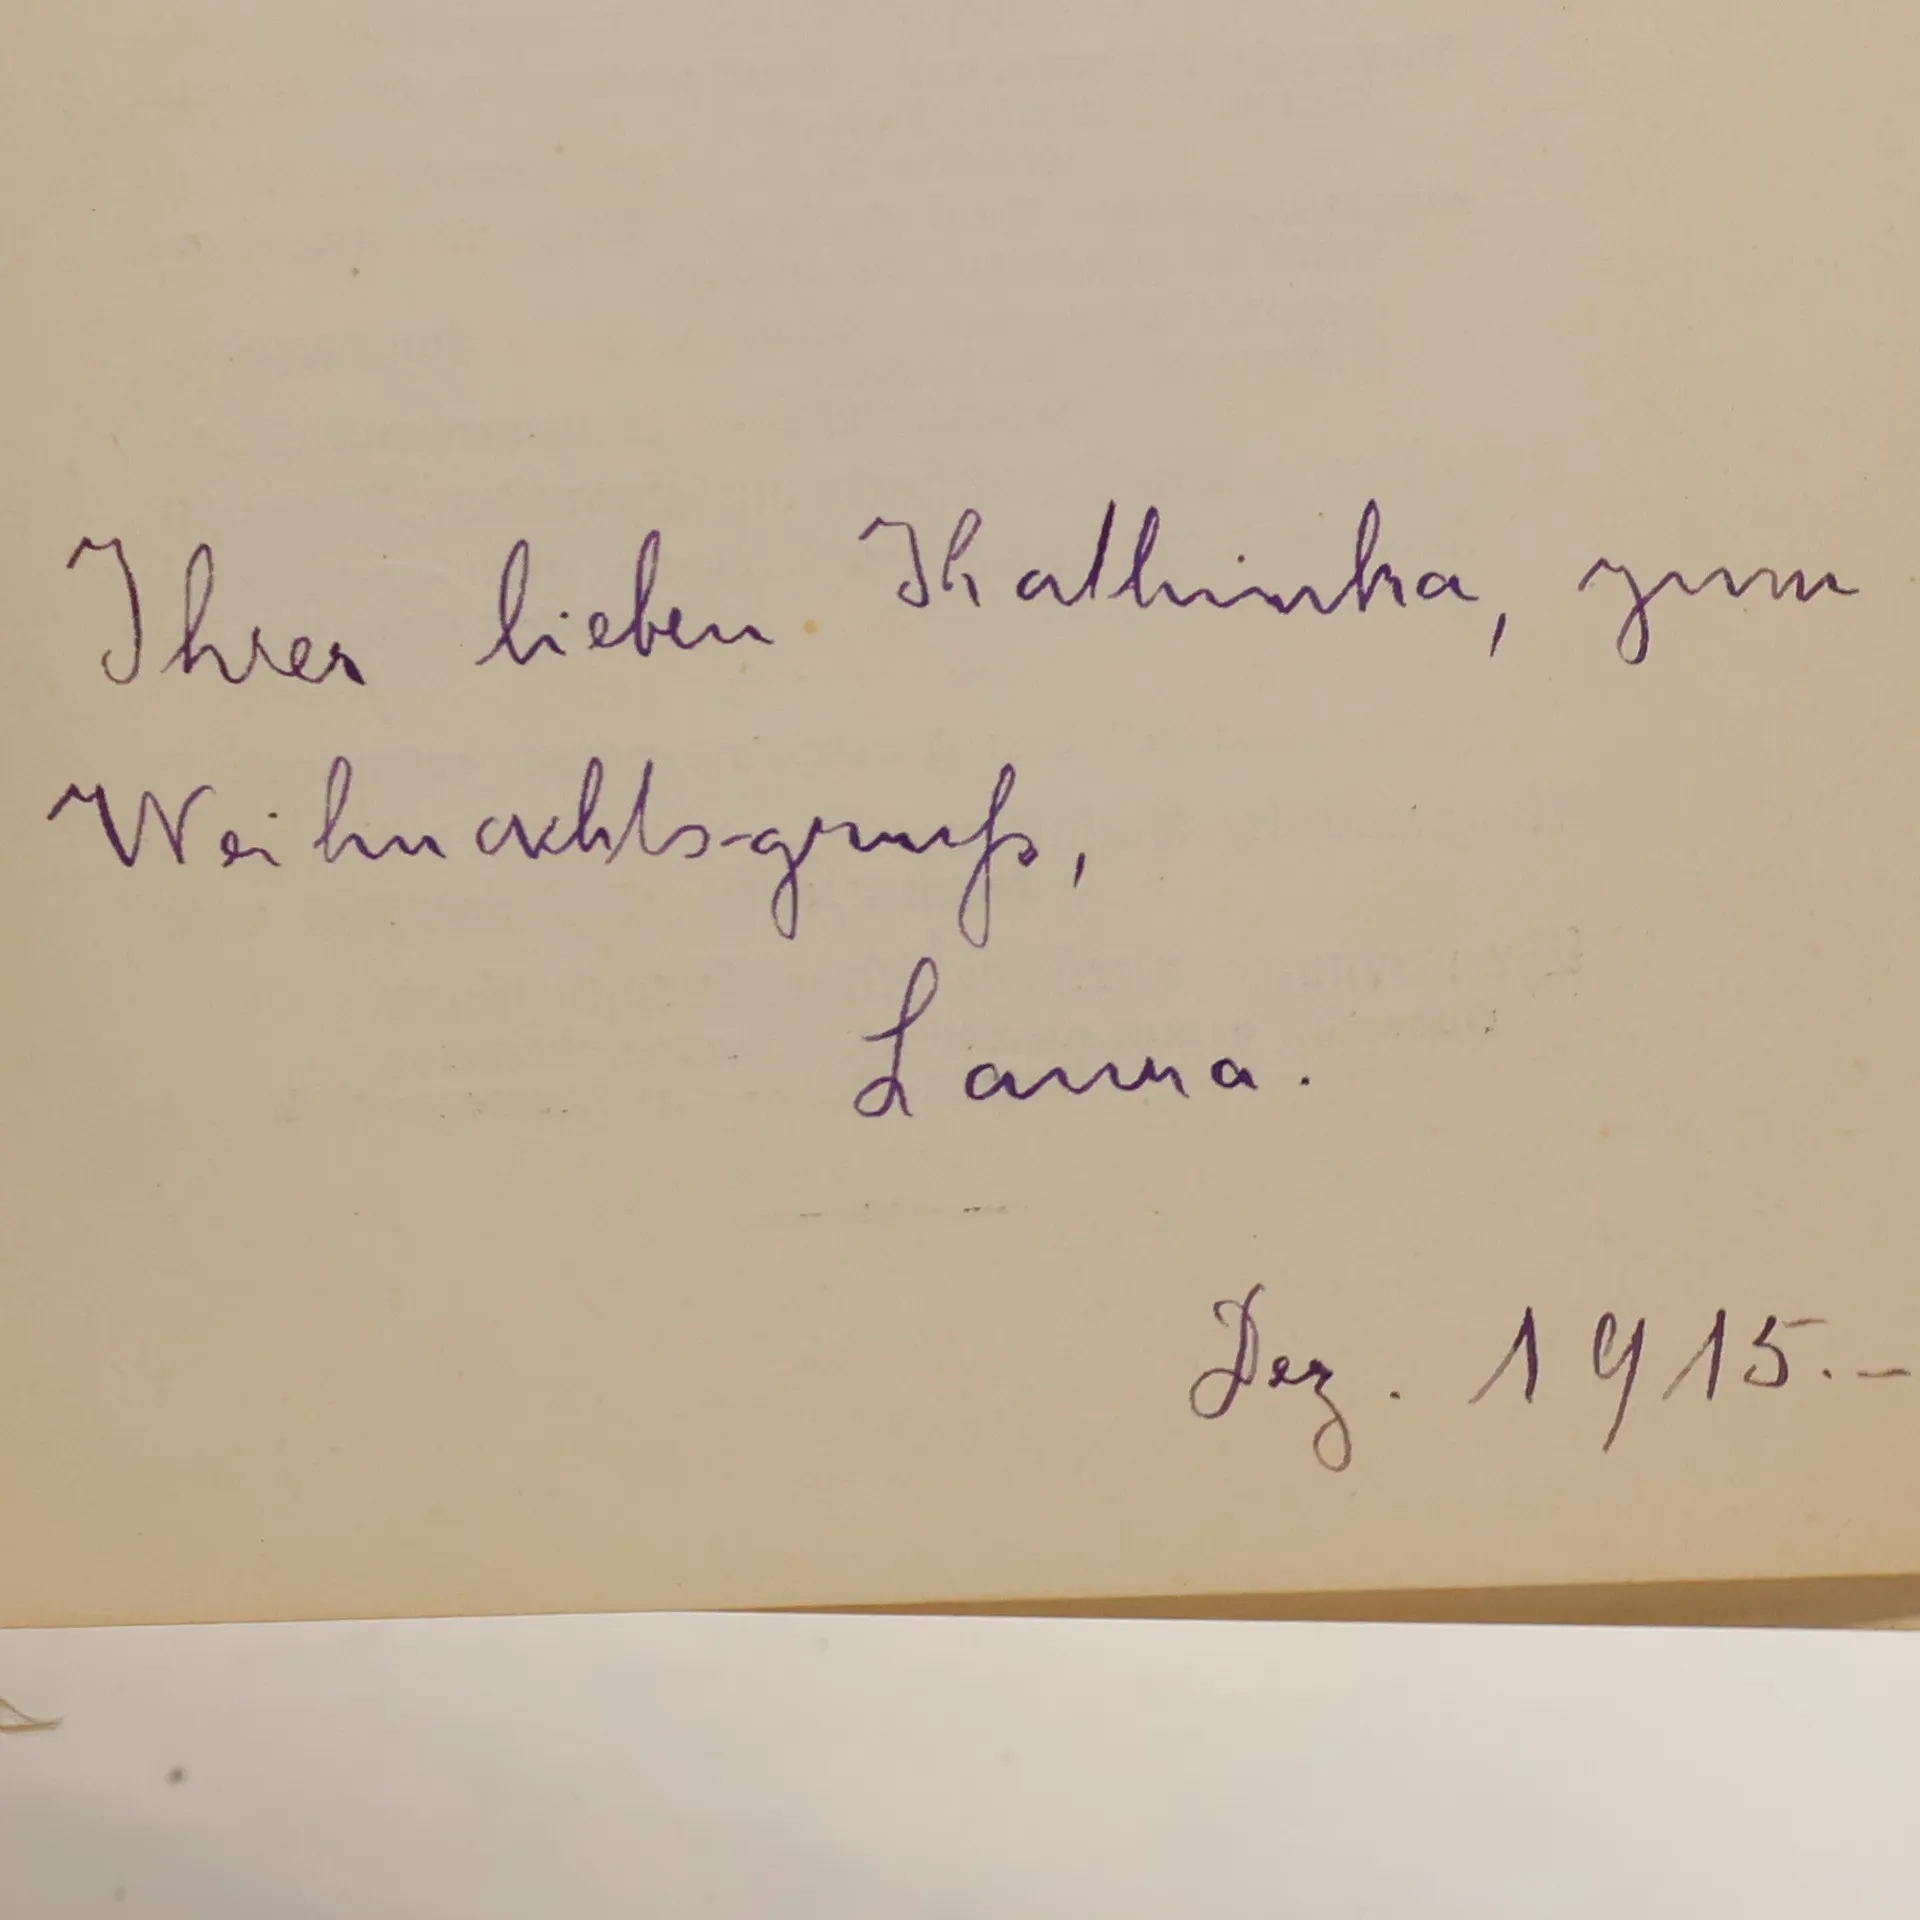 Ihrer lieben Kathinka, zum
Weihnachts-gruß,
Laura.
Dez. 1915.-